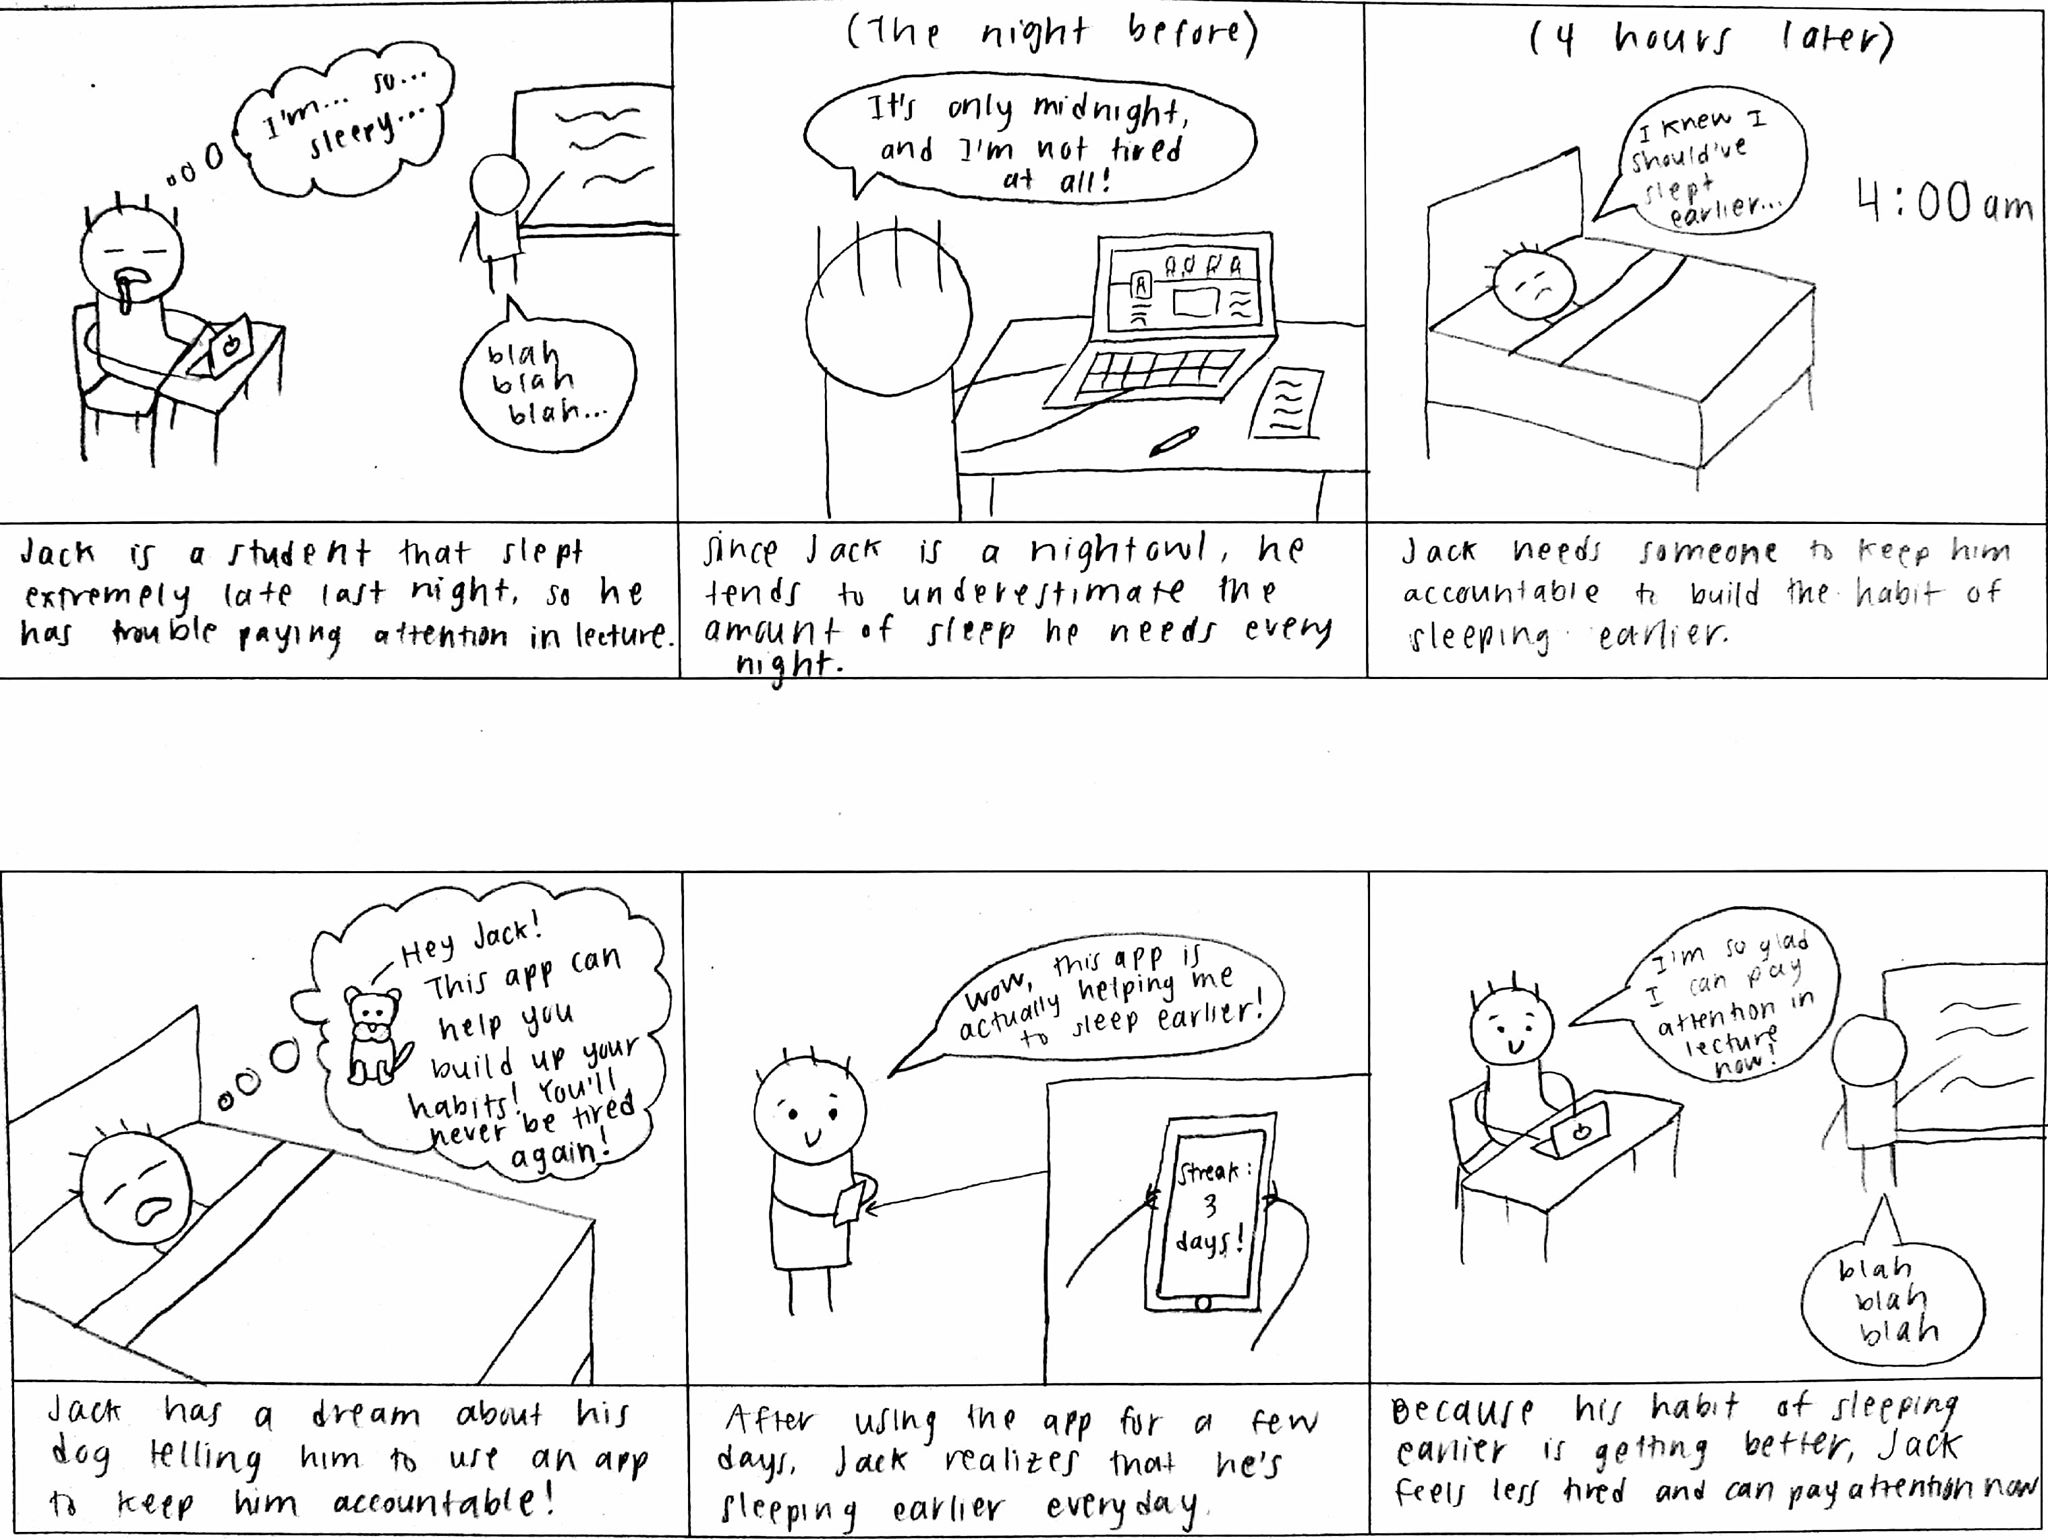 I'm... so...
sleepy...
blah
blah
blah...
Jack is a student that slept
extremely late last night, so he
has trouble paying attention in lecture.
(The night before)
It's only midnight,
and I'm not tired
at all!
since Jack is a nightowl, he
tends to underestimate the
amount of sleep he needs every
night.
(4 hours later)
I knew I
should've
slept
earlier...
4:00am
Jack needs someone to keep him
accountable to build the habit of
sleeping earlier.
Hey Jack!
This app can
help you
build up your
habits! You'll
never be tired
again!
Jack has a dream about his
dog telling him to use an app
to keep him accountable!
wow, this app is
actually helping me
to sleep earlier!
Streak:
3
days!
After using the app for a few
days, Jack realizes that he's
sleeping earlier everyday.
I'm so glad
I can pay
attention in
lecture
now!
blah
blah
blah
Because his habit of sleeping
earlier is getting better, Jack
feels less tired and can pay attention now